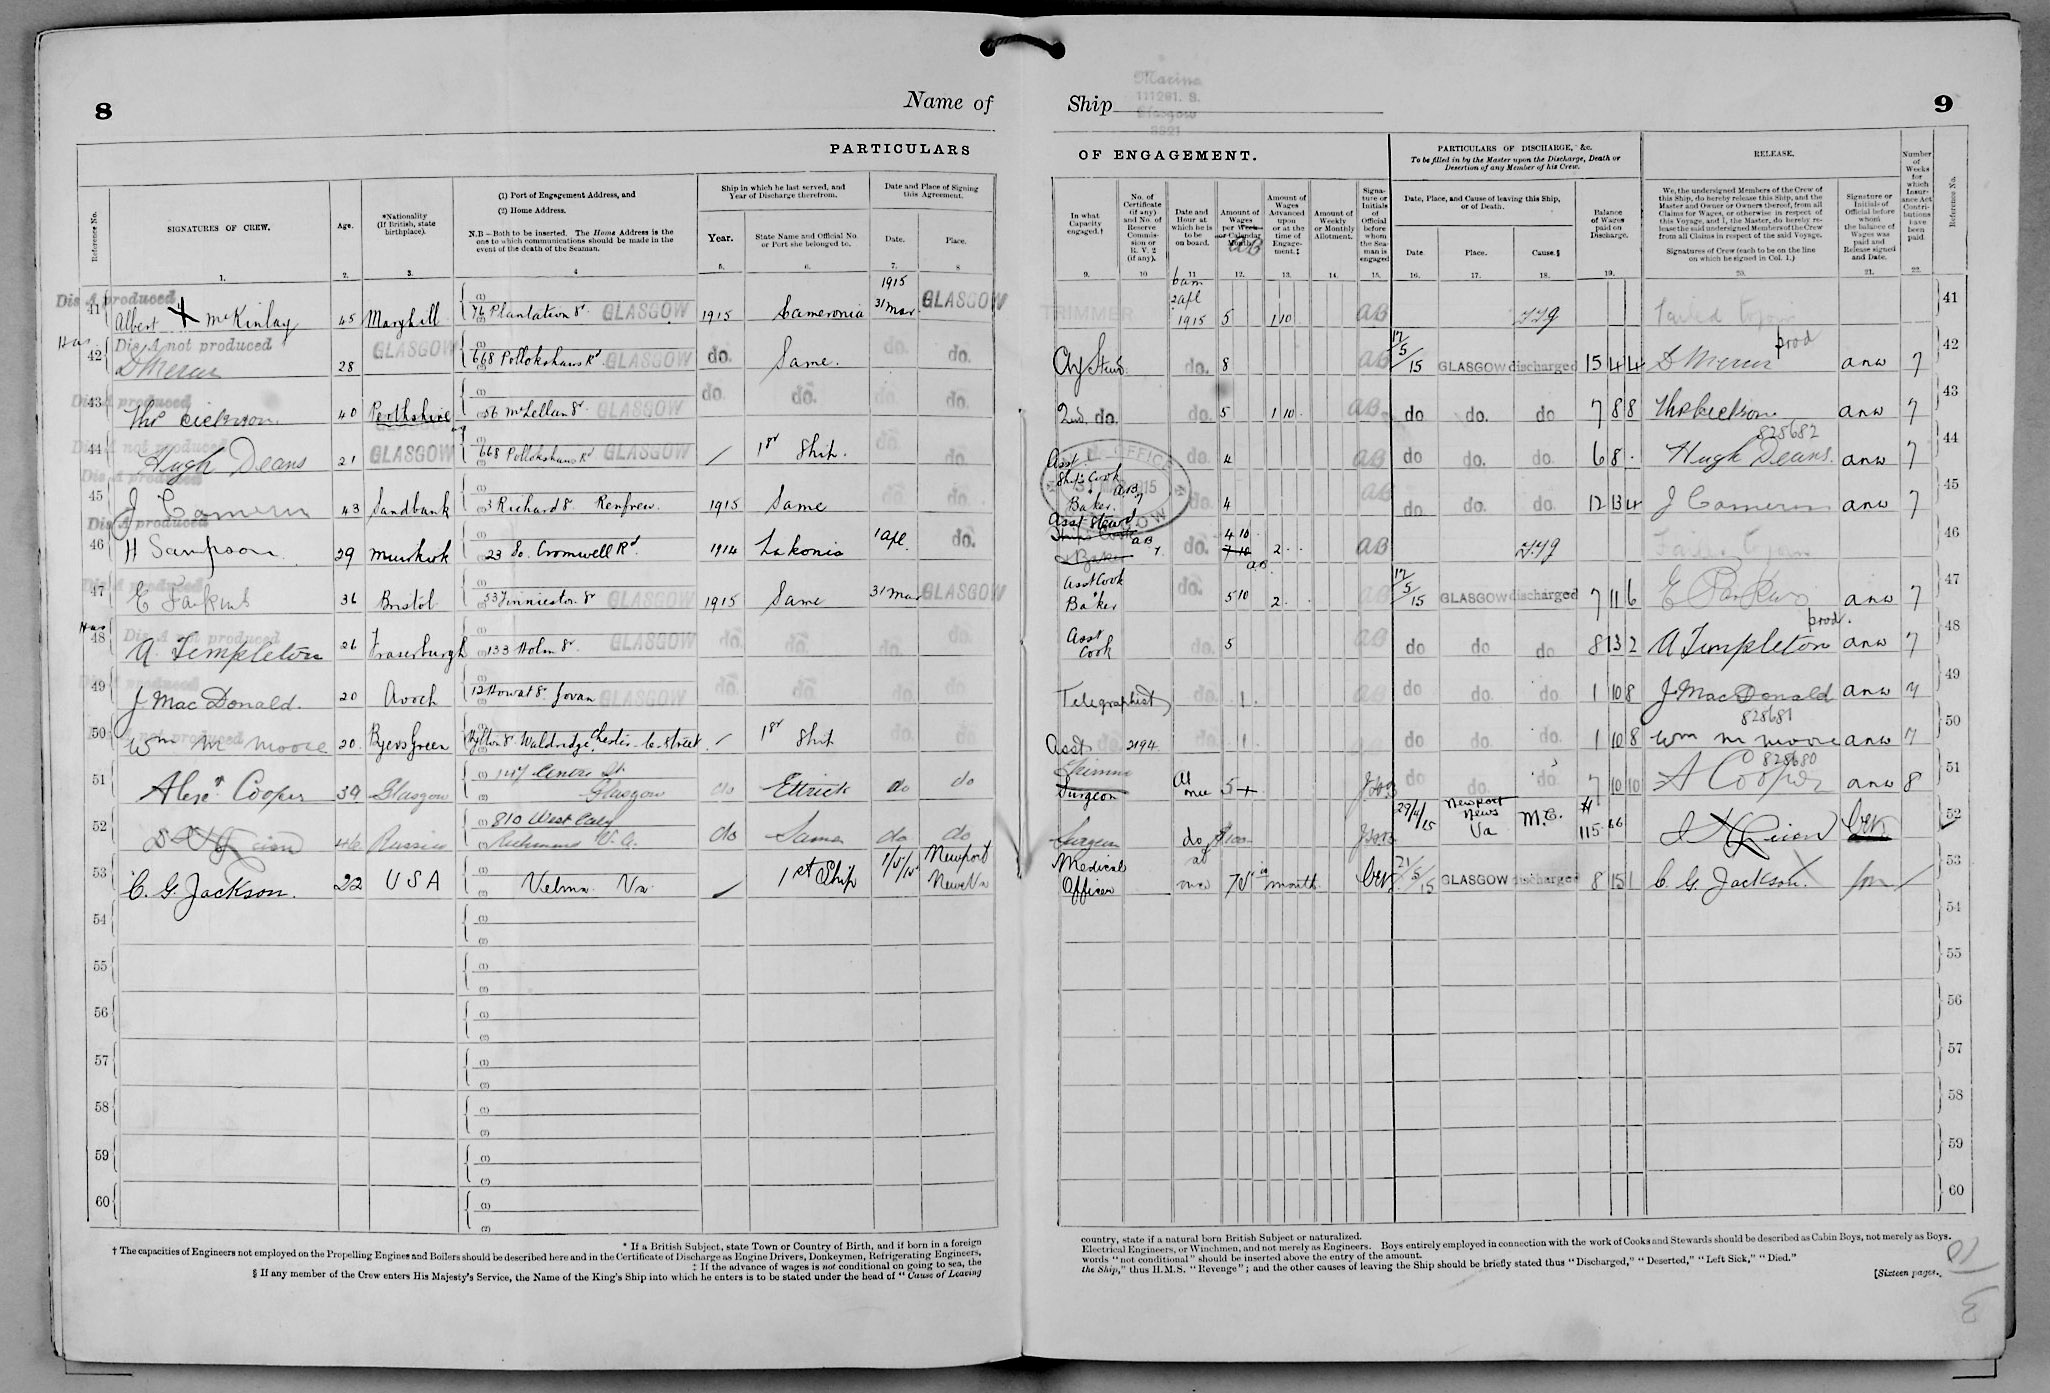 8
Name of
Ship
Marina
111261. S.
Glasgow
9
PARTICULARS
OF ENGAGEMENT.
PARTICULARS OF DISCHARGE, &c.
To be filled in by the Master upon the Discharge, Death or Desertion of any Member of his Crew.
RELEASE.
Reference No.
SIGNATURES OF CREW.
Age.
*Nationality (If British, state birthplace).
(1) Port of Engagement Address, and
(2) Home Address.
N.B—Both to be inserted. The Home Address is the one to which communications should be made in the event of the death of the Seaman.
Ship in which he last served, and Year of Discharge therefrom.
Year.
State Name and Official No. or Port she belonged to.
Date and Place of Signing this Agreement.
Date.
Place.
In what Capacity engaged.†
No. of Certificate (if any) and No. of Reserve Commission or R. V. 2 (if any).
Date and Hour at which he is to be on board.
Amount of Wages per Week or Calendar Month.
Amount of Wages Advanced upon or at the time of Engagement.‡
Amount of Weekly or Monthly Allotment.
Signature or Initials of Official before whom the Seaman is engaged
Date, Place, and Cause of leaving this Ship, or of Death.
Date.
Place.
Cause.§
Balance of Wages paid on Discharge.
We, the undersigned Members of the Crew of this Ship, do hereby release this Ship, and the Master and Owner or Owners thereof, from all Claims for Wages, or otherwise in respect of this Voyage, and I, the Master, do hereby release the said undersigned Members of the Crew from all Claims in respect of the said Voyage.
Signatures of Crew (each to be on the line on which he signed in Col. 1.)
Signature or Initials of Official before whom the balance of Wages was paid and Release signed and Date.
Number of Weeks for which Insurance Act Contributions have been paid.
Reference No.
1. 2. 3. 4 5. 6. 7. 8 9. 10 11 12. 13. 14. 15. 16. 17. 18. 19. 20. 21. 22.
Dis A produced
41 Albert X McKinlay 45 Maryhill 76 Plantation St. GLASGOW 1915 Cameronia 1915 31 Mar GLASGOW TRIMMER 6 am 2 Apl 1915 5 1 10 AB 41
Dis A not produced
42 28 GLASGOW 668 Pollokshaws Rd. GLASGOW do. Same. do. do. Ch Stewd. do. 8 AB 17/5/15 GLASGOW discharged 15 4 4 prod anw 7 42
Dis A produced
43 Thos Dickson 40 Perthshire 56 McLellan St. GLASGOW do do. do. do. 2nd. do. do. 5 1 10 AB do do. do 7 8 8 Thos Dickson anw 7 43
Dis A not produced
44 Hugh Deans 21 GLASGOW 668 Pollokshaws Rd GLASGOW / 1st Ship. do. do. Asst. do. 4 AB do do. do. 6 8 . 828682 Hugh Deans. anw 7 44
Dis A produced
45 J Cameron 43 Sandbank 3 Richard St. Renfrew. 1915 Same do. do. Ships Cook & Baker. do. 4 AB do do. do. 12 13 4 J Cameron anw 7 45
Dis A produced
46 H Sampson 29 Muirkirk 23 So. Cromwell Rd. 1914 Lakonia 1 Apl. do. Asst Steward do. 4 10 2 . . AB 46
Dis A produced
47 E Parkins 36 Bristol 53 Finnieston St GLASGOW 1915 Same 31 Mar GLASGOW Asst Cook & Baker do. 5 10 2 . AB 17/5/15 GLASGOW discharged 7 11 6 E Parkins anw 7 47
Dis A not produced
48 A. Templeton 26 Fraserburgh 133 Holm St. GLASGOW do. do. do. do. Asst Cook do. 5 AB do do do 8 13 2 prod. A Templeton anw 7 48
Dis A produced
49 J MacDonald. 20 Avoch 12 Howat St. Govan GLASGOW do. do. do. do. Telegraphist do. 1 . AB do do. do. 1 10 8 J. MacDonald anw 7 49
not produced
50 Wm M Moore 20. Byers Green Hylton St. Waldridge, Chester-le-Street. / 1st Ship do. do. Asst do 2194 do. 1 . do do. do. 1 10 8 828681 Wm M Moore anw 7 50
51 Alexr Cooper 39 Glasgow Centre St. Glasgow do Ettrick do do Trimmer At once 5 do do. 7 10 10 828680 A Cooper anw 8 51
52 46 Russia 810 West Cary Richmond V.A. do Same do do Surgeon do $100 29/4/15 Newport News Va M.C. $ 115.66 52
53 C. G. Jackson. 22 U S A Velma Va / 1st Ship 1/5/15 Newport News Va Medical Officer at once month 21/5/15 GLASGOW discharged 8 15 1 C. G. Jackson. / 53
54 54
55 55
56 56
57 57
58 58
59 59
60 60
* If a British Subject, state Town or Country of Birth, and if born in a foreign
country, state if a natural born British Subject or naturalized.
† The capacities of Engineers not employed on the Propelling Engines and Boilers should be described here and in the Certificate of Discharge as Engine Drivers, Donkeymen, Refrigerating Engineers,
Electrical Engineers, or Winchmen, and not merely as Engineers. Boys entirely employed in connection with the work of Cooks and Stewards should be described as Cabin Boys, not merely as Boys.
‡ If the advance of wages is not conditional on going to sea, the
words "not conditional" should be inserted above the entry of the amount.
§ If any member of the Crew enters His Majesty's Service, the Name of the King's Ship into which he enters is to be stated under the head of "Cause of Leaving
the Ship," thus H.M.S. "Revenge"; and the other causes of leaving the Ship should be briefly stated thus "Discharged," "Deserted," "Left Sick," "Died."
[Sixteen pages.